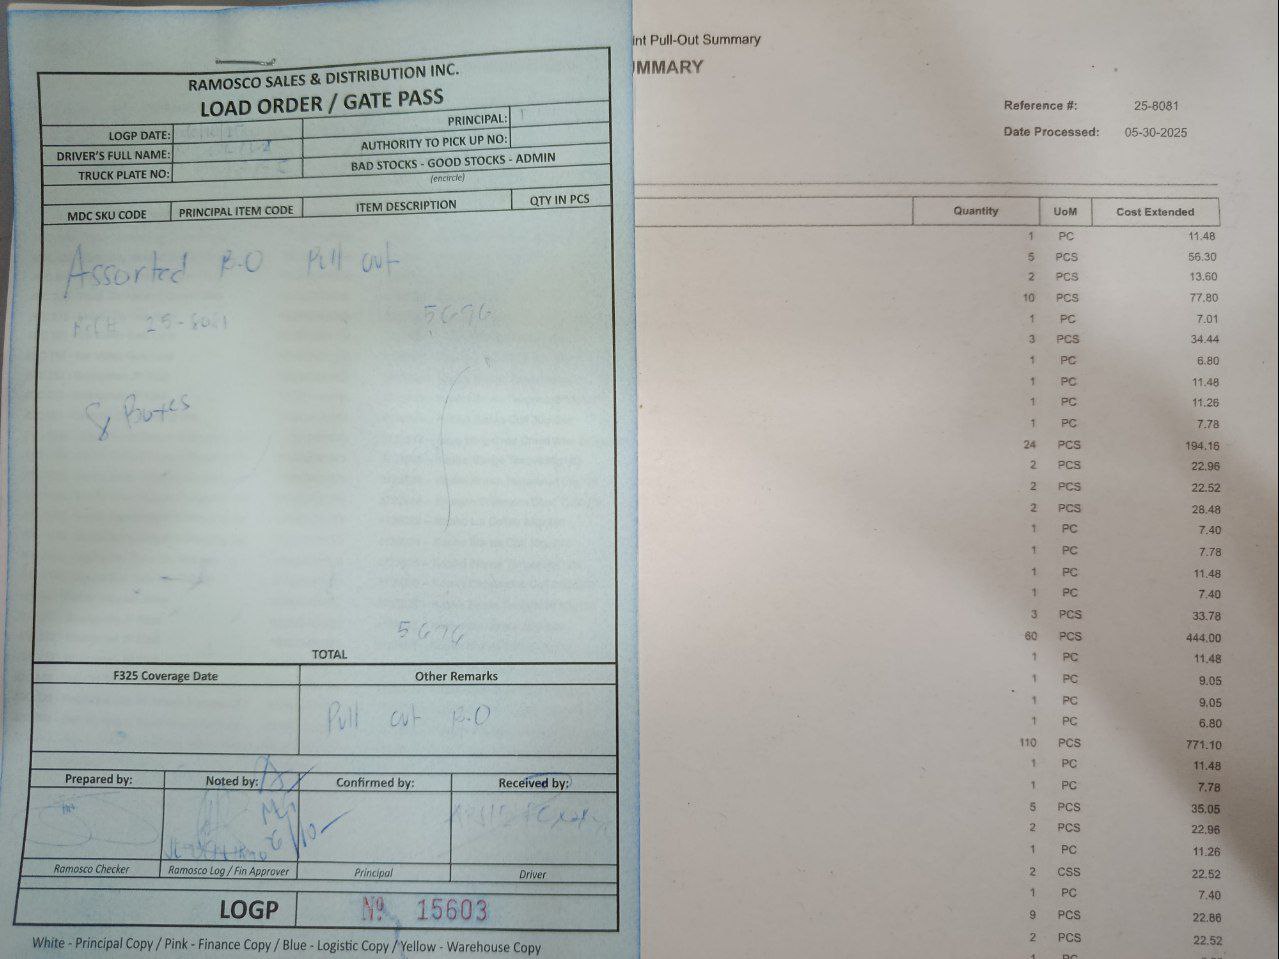 RAMOSCO SALES & DISTRIBUTION INC.
LOAD ORDER / GATE PASS
LOGP DATE:
PRINCIPAL:
DRIVER'S FULL NAME:
AUTHORITY TO PICK UP NO:
TRUCK PLATE NO:
BAD STOCKS - GOOD STOCKS - ADMIN
(encircle)
MDC SKU CODE PRINCIPAL ITEM CODE ITEM DESCRIPTION QTY IN PCS
Assorted B.O Pull out
25-8081 5676
8 Boxes
5676
TOTAL
F325 Coverage Date Other Remarks
Pull out B.O
Prepared by: Noted by: Confirmed by: Received by:
6/10
Ramosco Checker Ramosco Log / Fin Approver Principal Driver
LOGP Nº 15603
White - Principal Copy / Pink - Finance Copy / Blue - Logistic Copy / Yellow - Warehouse Copy
int Pull-Out Summary
UMMARY
Reference #: 25-8081
Date Processed: 05-30-2025
Quantity UoM Cost Extended
1 PC 11.48
5 PCS 56.30
2 PCS 13.60
10 PCS 77.80
1 PC 7.01
3 PCS 34.44
1 PC 6.80
1 PC 11.48
1 PC 11.26
1 PC 7.78
24 PCS 194.16
2 PCS 22.96
2 PCS 22.52
2 PCS 28.48
1 PC 7.40
1 PC 7.78
1 PC 11.48
1 PC 7.40
3 PCS 33.78
60 PCS 444.00
1 PC 11.48
1 PC 9.05
1 PC 9.05
1 PC 6.80
110 PCS 771.10
1 PC 11.48
1 PC 7.78
5 PCS 35.05
2 PCS 22.96
1 PC 11.26
2 CSS 22.52
1 PC 7.40
9 PCS 22.86
2 PCS 22.52
1 PC